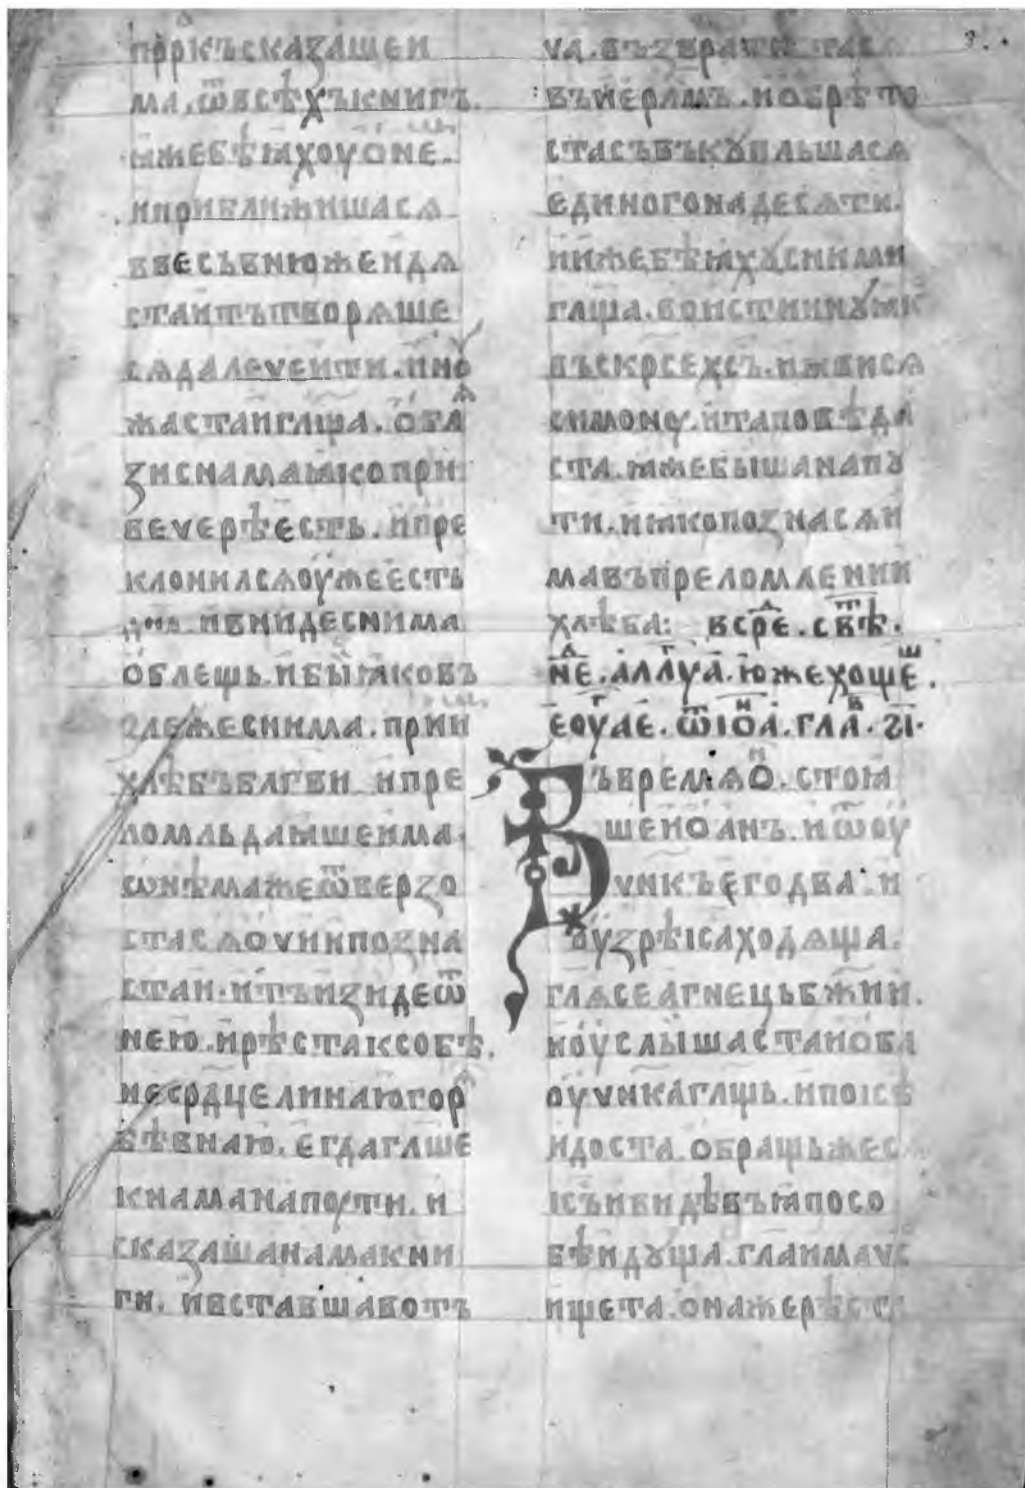 прⷪ҇ркъсказашеи
ма.ѿвсѣхъкнигъ.
ꙗжебѣꙗхоуѻне.
иприближишасѧ
ввесьвнюжеидѧ
стаитътворѧше
сѧдалеѵеити.ино
жастаиглⷶща.ѻба
зиснамаꙗкопри
веѵерѣесть.ипре
клонилсѧоужеесть
дн҃ь.ивнидеснима
ѻблещь.ибыꙗковъ
злежеснима.прии
хлѣбъблг҃ви ипре
ломльдаꙗшеима.
ѡнѣмажеѿверзо
стасѧѻѵиипозна
стаи.итъизидеѿ
нею.ирѣстаксобѣ.
несрдцелинаюгор
ѣвнаю.егдагл҃ше
кнаманапоути.и
сказашанамакни
ги.ивставшавотъ
ѵа.възвратистасѧ
въиер҃лмъ.иѻбрѣто
стасъвъкꙋпльшасѧ
единогонадесѧти.
иижебѣꙗхꙋсними
гл҃ща.воистиннꙋꙗк
въскр҃сехсъ.иꙗвисѧ
симону.итаповѣда
ста.ꙗжебышанапꙋ
ти.иꙗкопознасѧи
мавъпреломлении
хлѣба: всрⷣе.свⷮѣ.
нⷣе.аллⷢуа.южехощеⷲ.
еоуⷢае.ѿіѻⷩа.глаⷡ.зі.
Въвремѧѻⷩ.стоꙗ
шеиѻанъ.иѿоу
ѵнкъегодва.и
оузрѣісаходѧща.
глѧсеагнецьбжии.
иоуслышастаиѻба
оуѵнкаглщь.ипоісѣ
идоста.ѻбращьжес
ісъивидѣвъꙗпосо
бѣидꙋща.глаимаѵс
ищета.онажерѣста